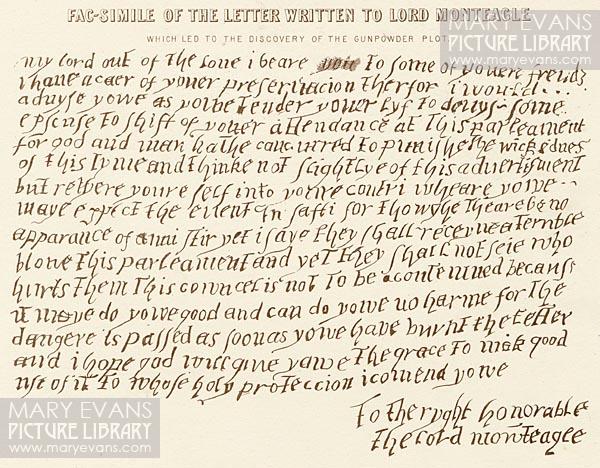 FAC-SIMILE OF THE LETTER WRITTEN TO LORD MONTEAGLE
WHICH LED TO THE DISCOVERY OF THE GUNPOWDER PLOT
MARY EVANS
PICTURE LIBRARY
www.maryevans.com
my lord out of the love i beare yow to some of youere frends
i have a caer of youer preservacion therfor i would
advyse yowe as yowe tender youer lyf to devys some
epscuse to shift of youer attendance at this parleament
for god and man hathe concurred to punishe the wickednes
of this tyme and thinke not slightlye of this advertisment
but retyere youre self into youre contri wheare yowe
maye expect the event in safti for thowghe theare be no
apparance of anni stir yet i saye they shall receyve a terrible
blowe this parleament and yet they shall not seie who
hurts them this councel is not to be a contemned because
it maye do yowe good and can do yowe no harme for the
dangere is passed as soon as yowe have burnt the letter
and i hope god will give yowe the grace to mak good
use of it to whose holy proteccion i comend yowe
To the ryght honorable
the lord monteagle
MARY EVANS
PICTURE LIBRARY
www.maryevans.com